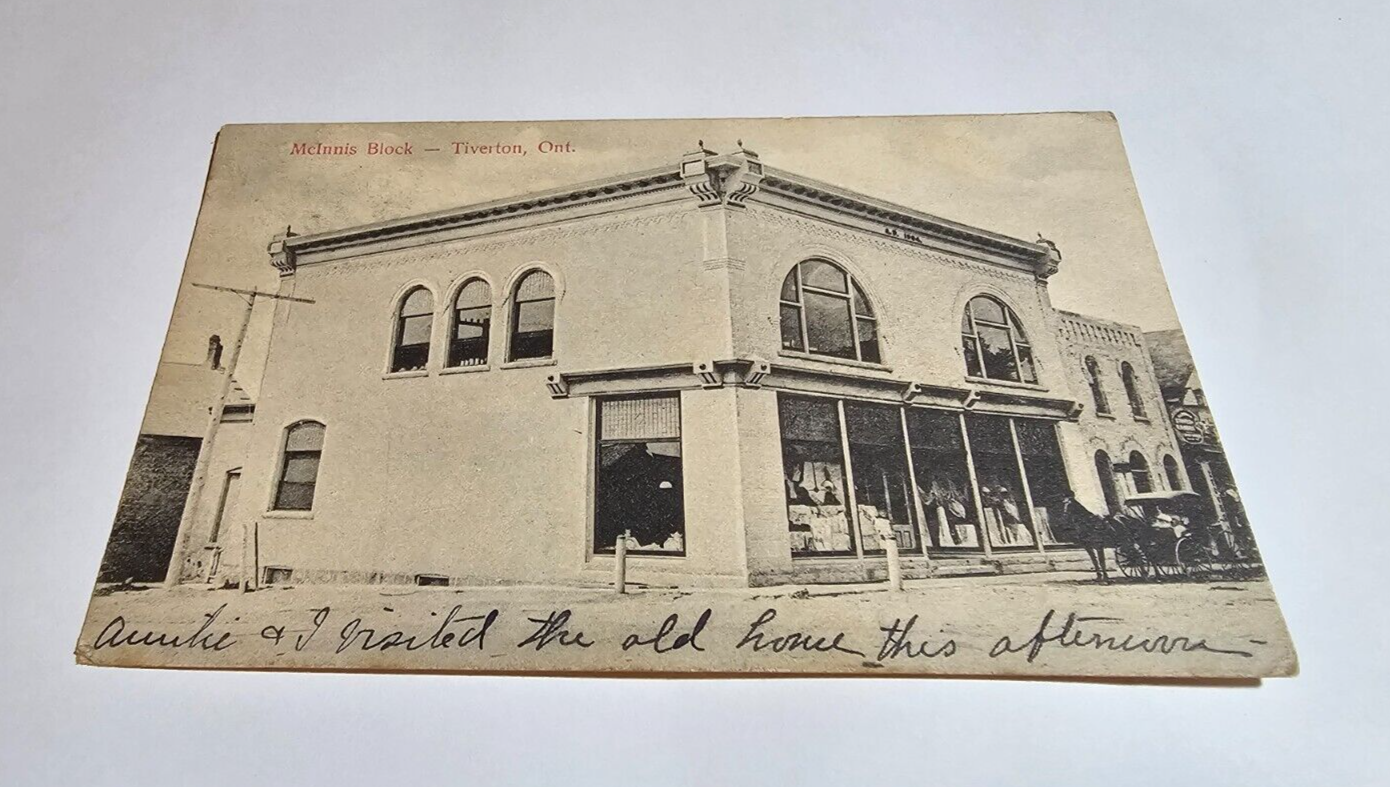 McInnis Block — Tiverton, Ont.
A.D. 1904.
Auntie & I visited the old home this afternoon —